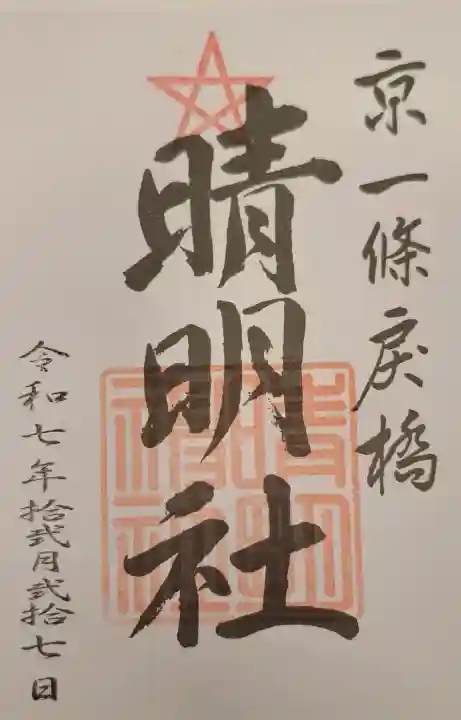 京一條戻橋
晴明社
晴明
神社
令和七年拾弐月弐拾七日